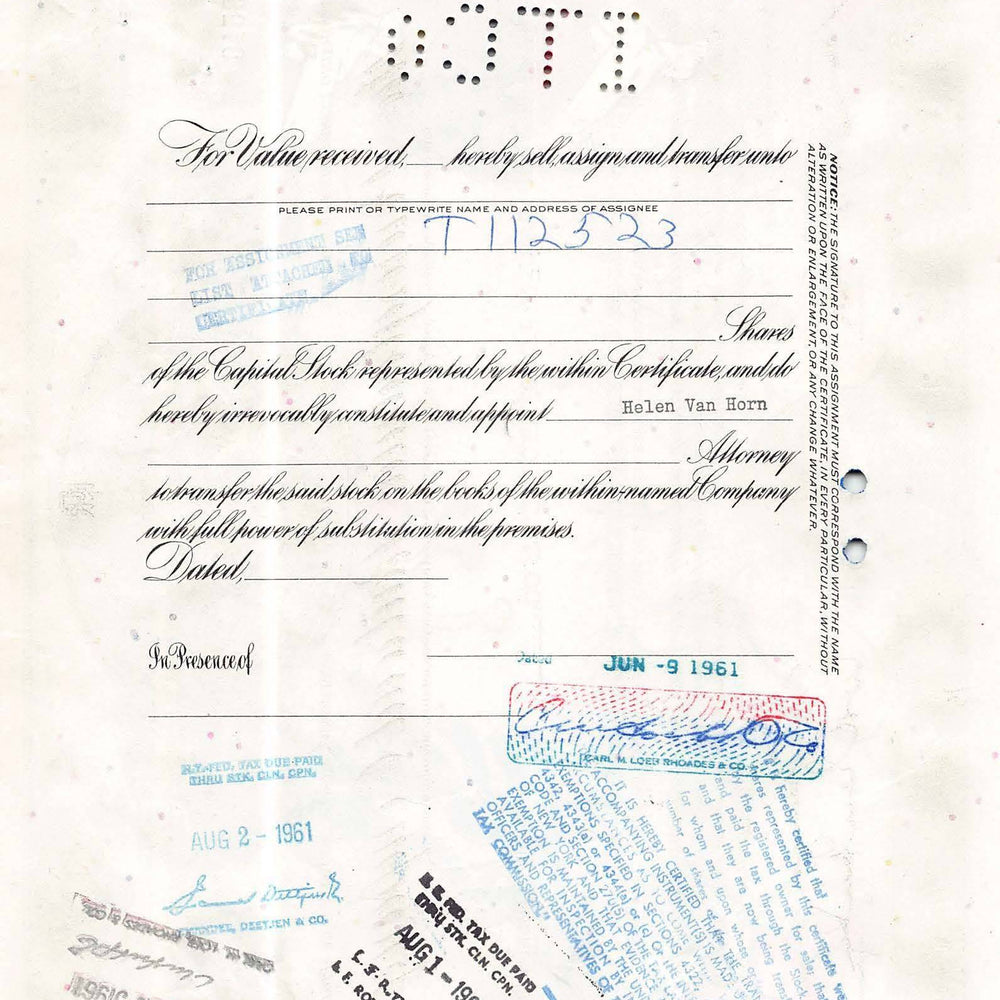 For Value received, ___ hereby sell, assign and transfer unto
PLEASE PRINT OR TYPEWRITE NAME AND ADDRESS OF ASSIGNEE
T112523
FOR ASSIGNMENT SEE
LIST ATTACHED TO
Shares
of the Capital Stock represented by the within Certificate, and do
hereby irrevocably constitute and appoint Helen Van Horn
Attorney
to transfer the said stock on the books of the within-named Company
with full power of substitution in the premises.
Dated,
In Presence of
NOTICE: THE SIGNATURE TO THIS ASSIGNMENT MUST CORRESPOND WITH THE NAME
AS WRITTEN UPON THE FACE OF THE CERTIFICATE, IN EVERY PARTICULAR, WITHOUT
ALTERATION OR ENLARGEMENT, OR ANY CHANGE WHATEVER.
Dated JUN -9 1961
CARL M. LOEB RHOADES & CO.
N.Y.-FED. TAX DUE-PAID
THRU STK. CLN. CPN.
AUG 2 - 1961
DEETJEN & CO.
FED. TAX DUE PAID
THRU STK. CLN. CPN.
AUG 1 - 196
IT IS HEREBY CERTIFIED
ACCOMPANYING INSTRUMENT(S) IS MADE
CIRCUMSTANCES AS TO
EMPTIONS SPECIFIED IN SECTIONS
4342, 4343(a) or 4344(a) or (c) OF THE
CODE AND SECTION 270(5) OF THE TAX LAW
OF NEW YORK AND THAT EVIDENCE
EXEMPTION IS MAINTAINED
AVAILABLE FOR INSPECTION BY THE
OFFICERS AND REPRESENTATIVES OF
TAX COMMISSION.
hereby certified that
represented by this certificate
by the registered owner for sale;
paid the tax through the Stock
and that they are now being
for whom and upon whose
number of shares of